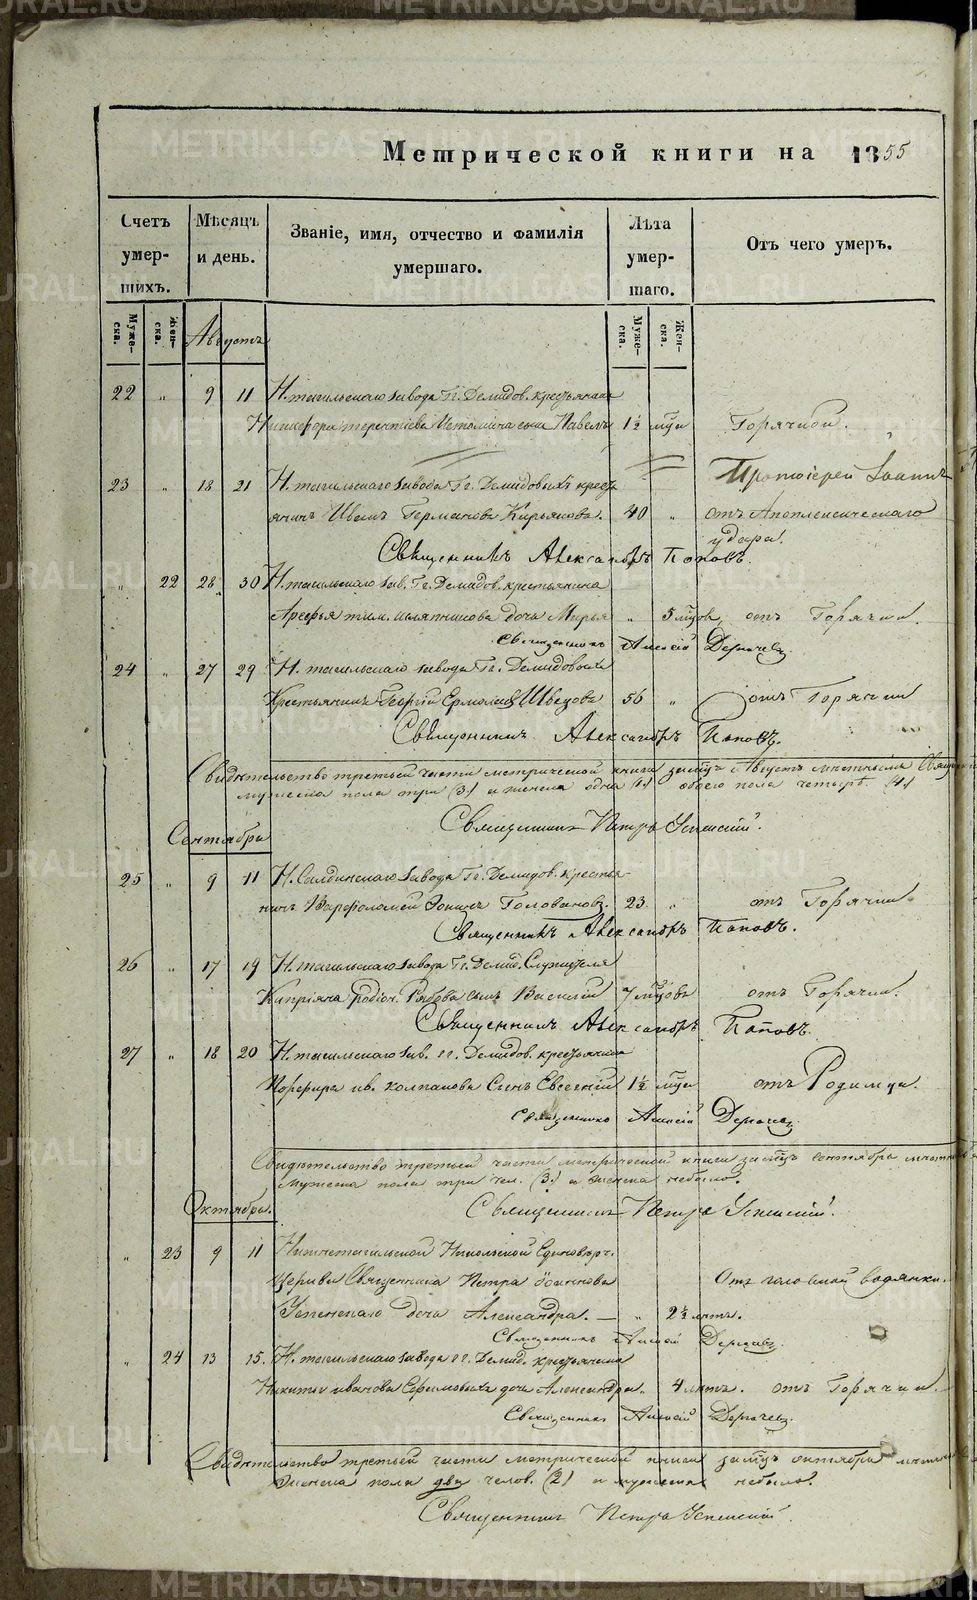 Метрической книги на 1855
Счетъ умер-шихъ.
Мѣсяцъ и день.
Званіе, имя, отчество и фамилія умершаго.
Лѣта умер-шаго.
Отъ чего умеръ.
Муже-ска. Жен-ска. Муже-ска. Жен-ска.
Августъ
22 „ 9 11 Н. тагильскаго завода Гг. Демидов. крестьянина
Никифора терентіева Истомина сынъ Павелъ 1½ мцы Горячкой.
Протоіерей Іоаннъ
23 „ 18 21 Н. тагильскаго завода Гг. Демидовыхъ кресть
янинъ Иванъ Германовъ Кирьяковъ. 40 „ отъ Апоплексическаго
удара.
Священникъ Александръ Поповъ.
„ 22 28 30 Н. тагильскаго зав. Гг. Демидов. крестьянина
Арефья тим. дочь Марья „ 5 мцовъ отъ Горячки.
Священникъ Алексій
24 „ 27 29 Н. тагильскаго завода Гг. Демидовыхъ
Крестьянинъ Георгій Швецовъ 56 „ отъ Горячки
Священникъ Александръ Поповъ.
Свидѣтельство третьей части метрической книги за мцъ Августъ
мужеска пола три (3.) и женска одна (1) обоего пола четыре (4)
Священникъ Петръ Успенскій.
Сентябрь
25 „ 9 11 Н. Салдинскаго завода Гг. Демидов. крестья
нинъ Варфоломей Головановъ. 23 „ отъ Горячки
Священникъ Александръ Поповъ.
26 „ 17 19 Н. тагильскаго завода Гг. Демид. Служителя
Кипріяна Родіон. Рябова сынъ Василій 7 мцовъ отъ Горячки.
Священникъ Александръ Поповъ.
27 „ 18 20 Н. тагильскаго зав. гг. Демидов. крестьянина
Порфира ив. колпакова Сынъ Евгеній 1½ мцы отъ Родимца.
Священникъ Алексій
Свидѣтельство третьей части метрической книги за мцъ сентябрь
Мужеска пола три чел. (3.) а женска небыло.
Священникъ Петръ Успенскій.
Октябрь.
„ 23 9 11 Нижнетагильской Никольской Единовѣрч.
церкви Священника Петра Іоаннова Отъ головной водянки.
Успенскаго дочь Александра. — „ 2½ лѣтъ.
Священникъ Алексій
„ 24 13 15. Н. тагильскаго завода гг. Демид. крестьянина
Никиты иванова дочь Александра. 4 лѣтъ. отъ Горячки.
Священникъ Алексій
Свидѣтельство третьей части метрической книги за мцъ октябрь
Женска пола два челов. (2) и мужеска небыло.
Священникъ Петръ Успенскій.
METRIKI.GASO-URAL.RU